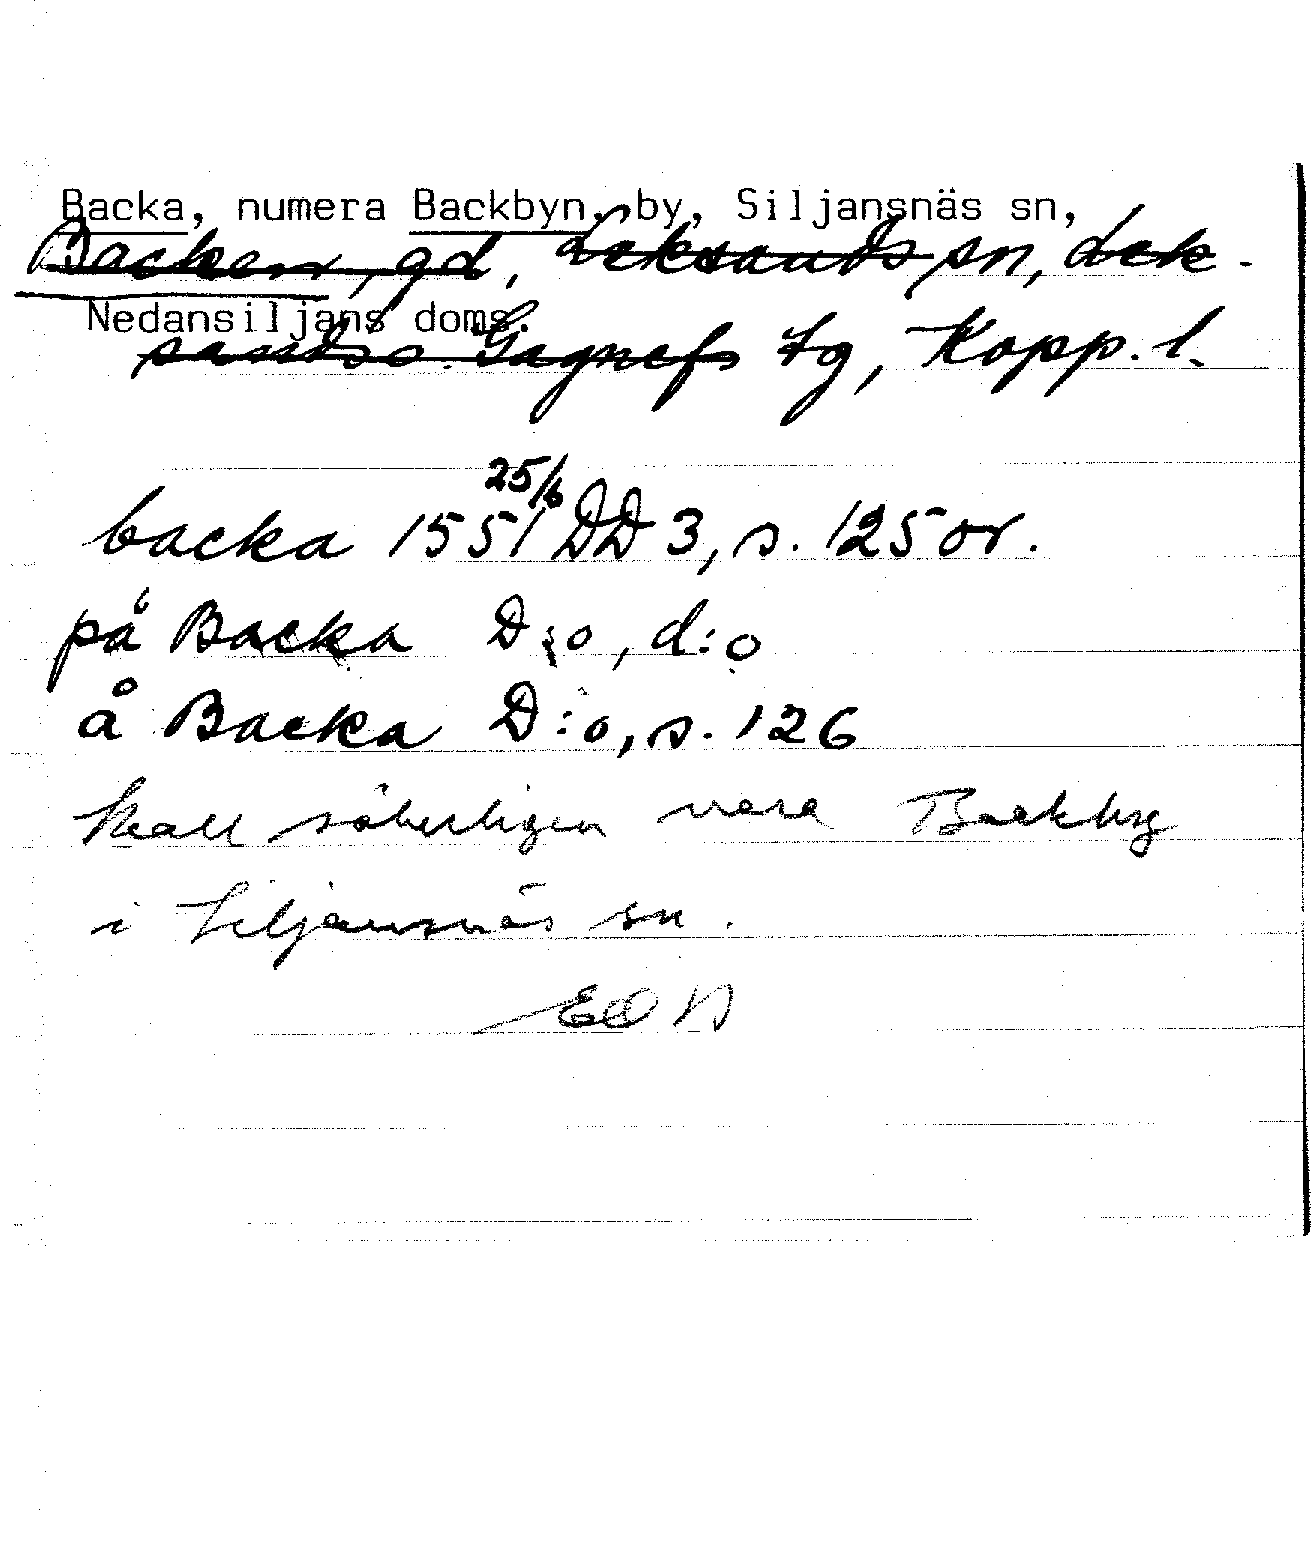 Backa, numera Backbyn, by, Siljansnäs sn,
Backen, gd, Leksands sn, Lek-
Nedansiljans doms.
sands o. Gagnefs tg, Kopp. l.
25/6
backa 1551 DD 3, s. 125 or.
på Backa D:o, d:o
å Backa D:o, s. 126
skall säkerligen vara Backby
i Siljansnäs sn.
EON